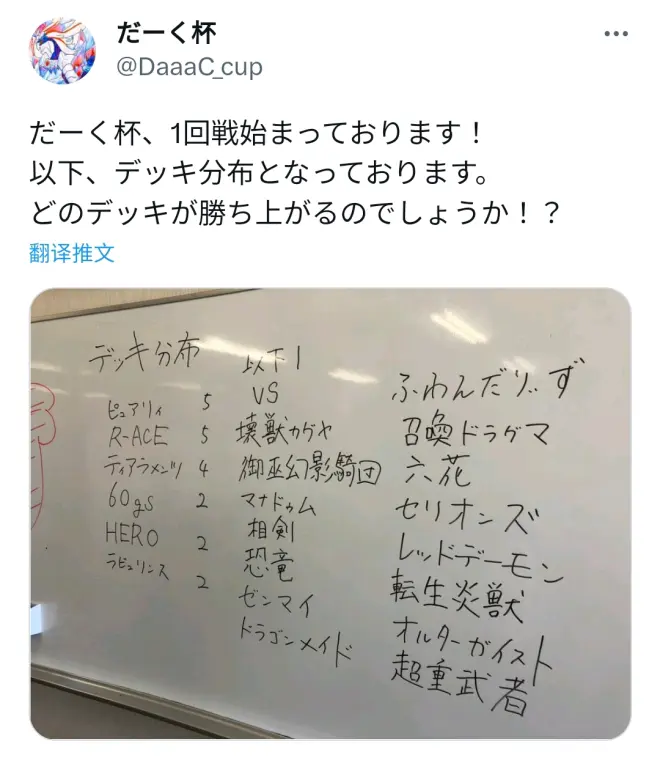 だーく杯
@DaaaC_cup
だーく杯、1回戦始まっております！
以下、デッキ分布となっております。
どのデッキが勝ち上がるのでしょうか！？
翻译推文
デッキ分布
ピュアリィ 5
R-ACE 5
ティアラメンツ 4
60gs 2
HERO 2
ラビュリンス 2
以下1
VS
壊獣カグヤ
御巫幻影騎団
マナドゥム
相剣
恐竜
ゼンマイ
ドラゴンメイド
ふわんだりぃず
召喚ドラグマ
六花
セリオンズ
レッドデーモン
転生炎獣
オルターガイスト
超重武者